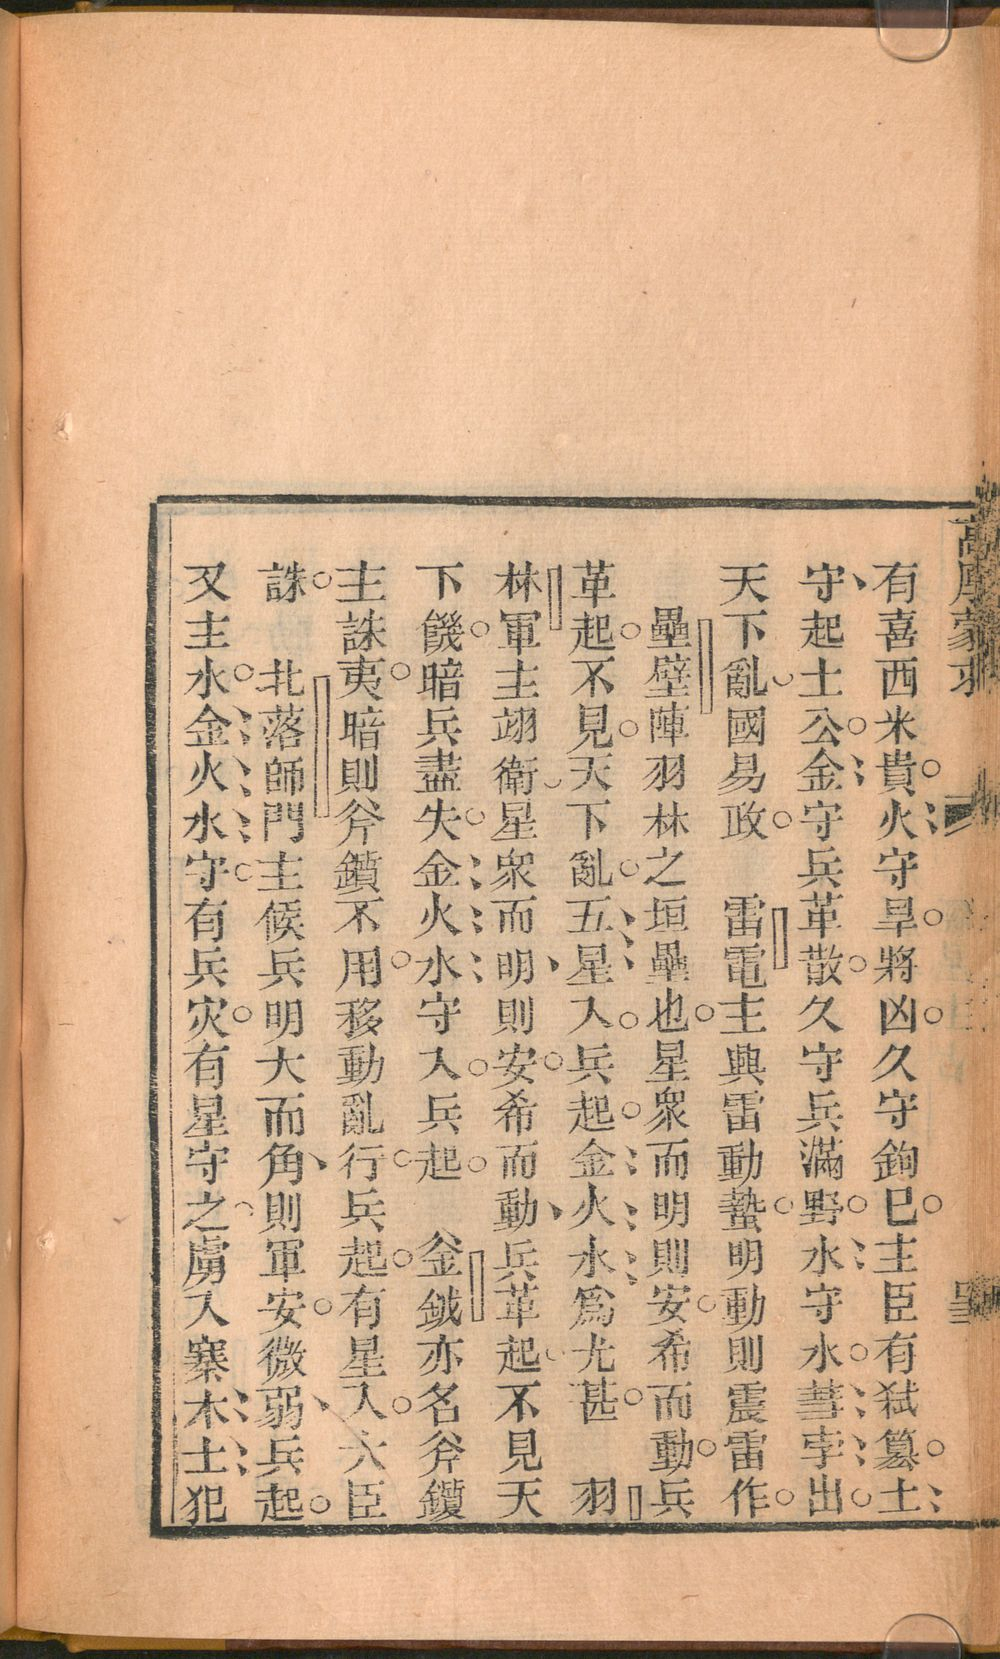 高厚蒙求
有喜西米貴火守旱將凶久守鉤巳主臣有弑簒土
守起土公金守兵革散久守兵滿野水守水彗孛出
天下亂國易政　雷電主興雷動蟄明動則震雷作
壘壁陣羽林之垣壘也星衆而明則安希而動兵
革起不見天下亂五星入兵起金火水爲尤甚　羽
林軍主翊衛星衆而明則安希而動兵革起不見天
下饑暗兵盡失金火水守入兵起　釡鉞亦名斧鑕
主誅夷暗則斧鑕不用移動亂行兵起有星入大臣
誅　北落師門主候兵明大而角則軍安微弱兵起
又主水金火水守有兵灾有星守之虜入寨木土犯